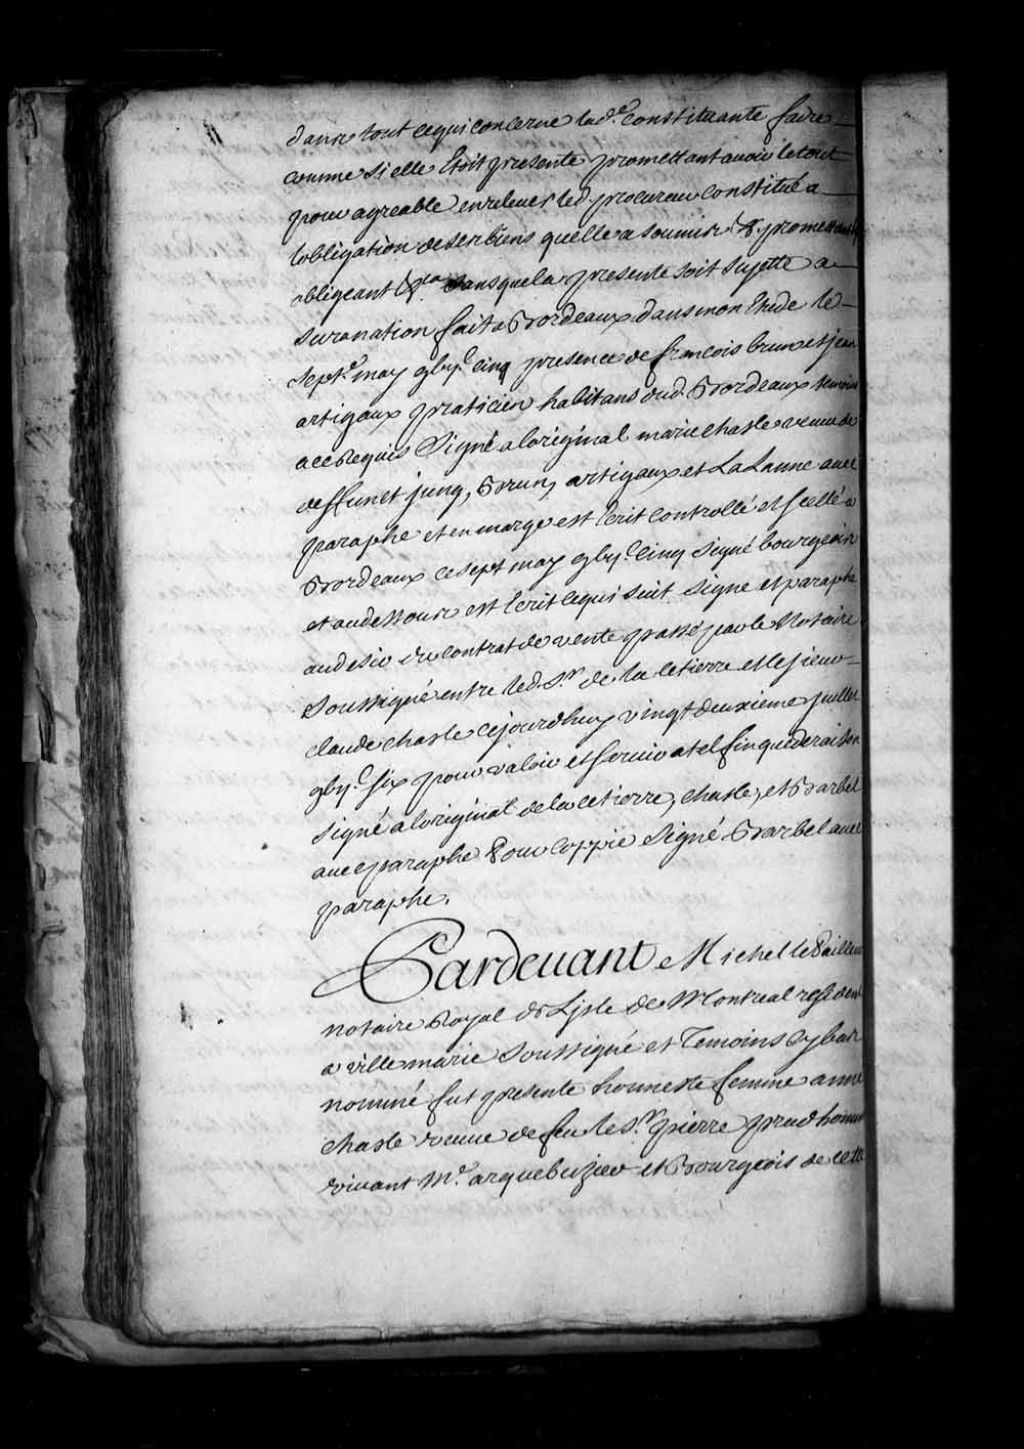 dans tout ce qui concerne lad.e constituante faire
comme si elle Etoit presente promettant avoir le tout
pour agreable en relever led. procureur constitué a
lobligation de ses biens quelle a soumis &. promettant
obligeant &.a sans que la presente soit sujette a
suranation fait a Bordeaux dans mon Etude le
sept.e may gby.c cinq presence de francois brun et jean
artigaux praticien habitans dud. Bordeaux temoins
a ce Requis Signé a loriginal marie chasle veuve de
deffunct jung, Brun, artigaux et LaLanne avec
paraphe et en marge est Ecrit Controllé et scellé a
Bordeaux ce sept may gby.c Cinq signé bourgeois
et au dessous est Ecrit ce qui suit signé et paraphé
au desir du contrat de vente passé par le Notaire
Soussigné entre led. S.r de la cetierre et le sieur
claude chasle cejourdhuy vingt deuxieme juillet
gby.c six pour valoir et servir a tel fin que de raison
signé a loriginal de la cetierre, chasle, et Barbel
avec paraphe Pour Coppie Signé Barbel avec
paraphe.
Pardevant Michel le Pailleur
notaire Royal de Lisle de Montreal resident
a ville marie Soussigné et Temoins cy bas
nommé fut presente honneste femme anne
chasle veuve de feu le S.r pierre prud homme
vivant M.e arquebuzier et Bourgeois de cette